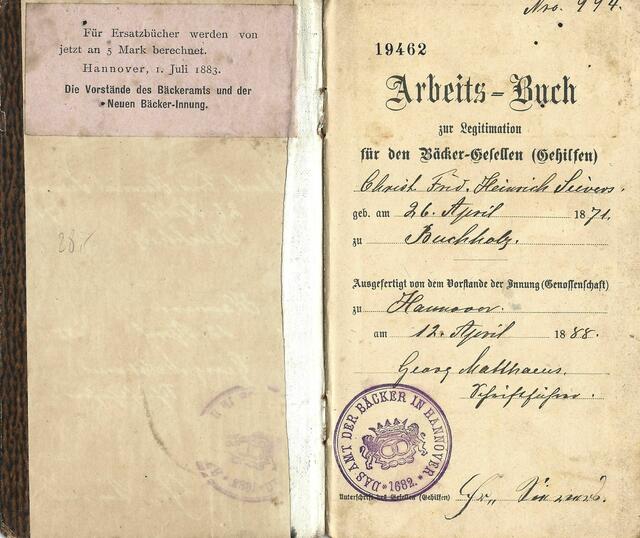 Für Ersatzbücher werden von
jetzt an 5 Mark berechnet.
Hannover, 1. Juli 1883.
Die Vorstände des Bäckeramts und der
Neuen Bäcker-Innung.
28.-
Nro. 994.
19462
Arbeits-Buch
zur Legitimation
für den Bäcker-Gesellen (Gehilfen)
Christ Frid. Heinrich Sievers.
geb. am 26. April 1871.
zu Buchholz.
Ausgefertigt von dem Vorstande der Innung (Genossenschaft)
zu Hannover.
am 12. April 1888.
Georg Matthaeus.
Schriftführer.
DAS AMT DER BÄCKER IN HANNOVER
*1682.*
Unterschrift des Gesellen (Gehilfen)